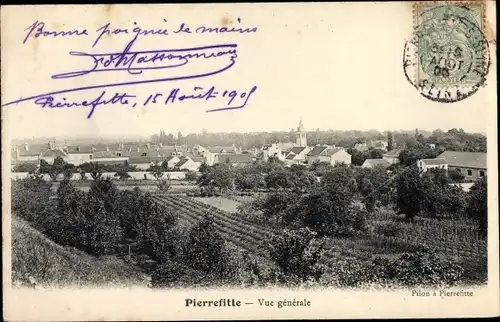 Bonne poignée de mains
Pierrefitte, 15 Août 1905
SEINE
AOUT
Pierrefitte — Vue générale
Pilon à Pierrefitte